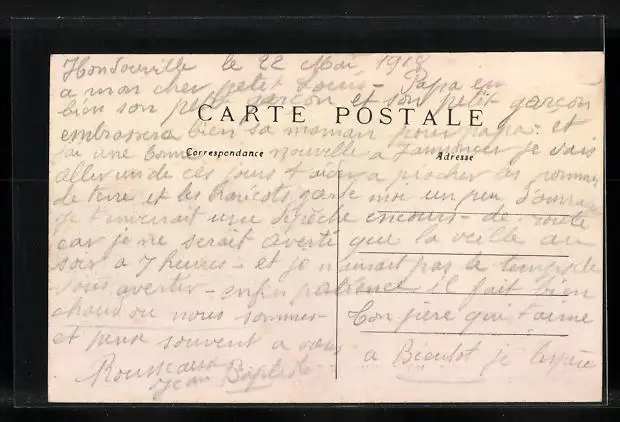 Hondouville le 22 Mai 1918
a mon cher petit Louis - Papa en
bien son petit garçon et son petit garçon
CARTE POSTALE
embrassera bien sa maman pour papa. et
j'ai une bonne nouvelle a t'annoncer je vais
Correspondance
Adresse
aller un de ces jours t'aider a piocher les pommes
de terre et les haricots garde moi un peu d'ouvrage
je t'enverrait une dépêche en cours de route
car je ne serait averti que la veille au
soir a 7 heures - et je n'aurait pas le temps de
vous avertir - enfin patience il fait bien
chaud ou nous sommes -
et pense souvent a vous
Ton père qui t'aime
a Bientot je l'espère
Rousseaux
Jean Baptiste